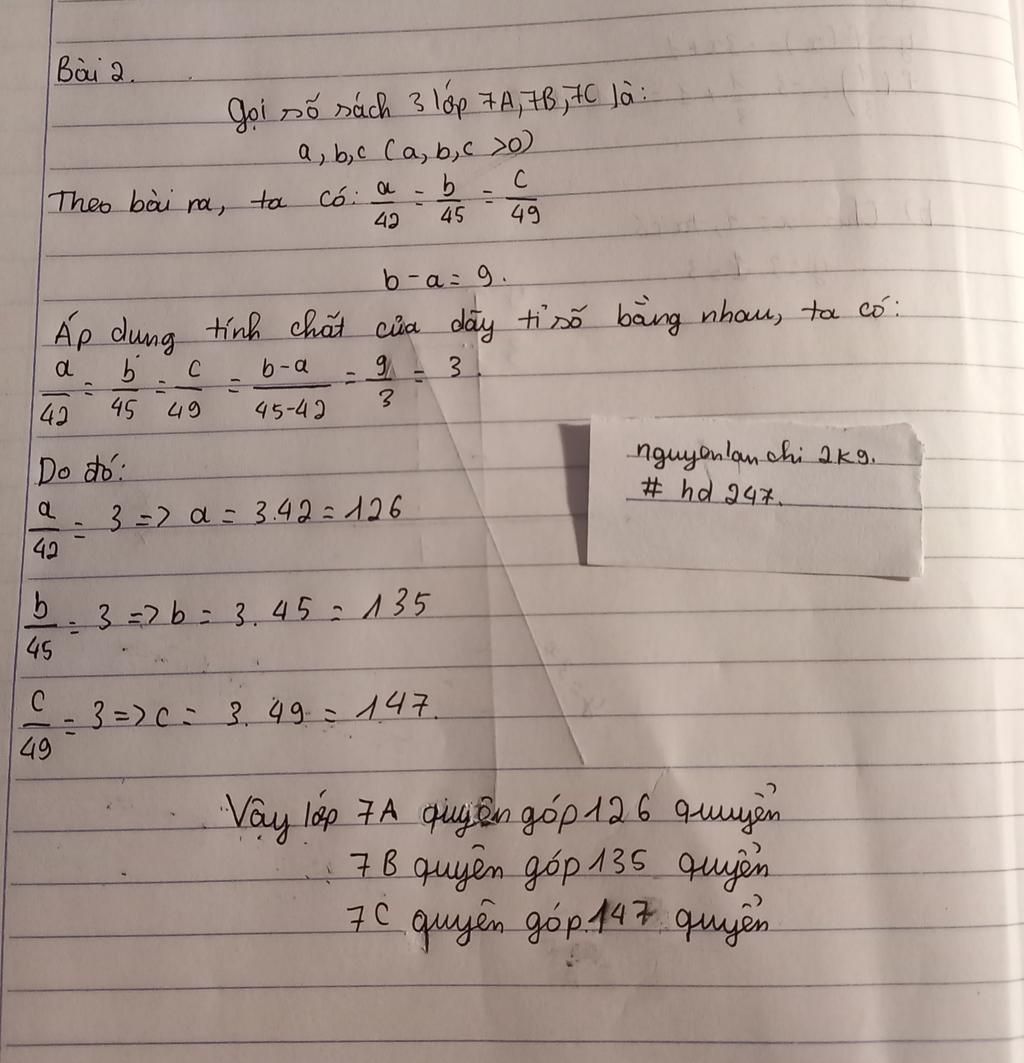 Bài 2.
Gọi số sách 3 lớp 7A, 7B, 7C là:
a, b, c (a, b, c >0)
Theo bài ra, ta có: a/42 = b/45 = c/49
b - a = 9.
Áp dung tính chất của dãy tỉ số bằng nhau, ta có:
a/42 = b/45 = c/49 = b-a/45-42 = 9/3 = 3.
Do đó:
a/42 = 3 => a = 3.42 = 126
b/45 = 3 => b = 3. 45 = 135
c/49 = 3 => c = 3. 49 = 147.
Vậy lớp 7A quyên góp 126 quuyển
7B quyên góp 135 quyển
7C quyên góp 147 quyển
nguyenlan chi 2k9.
# hd 247.